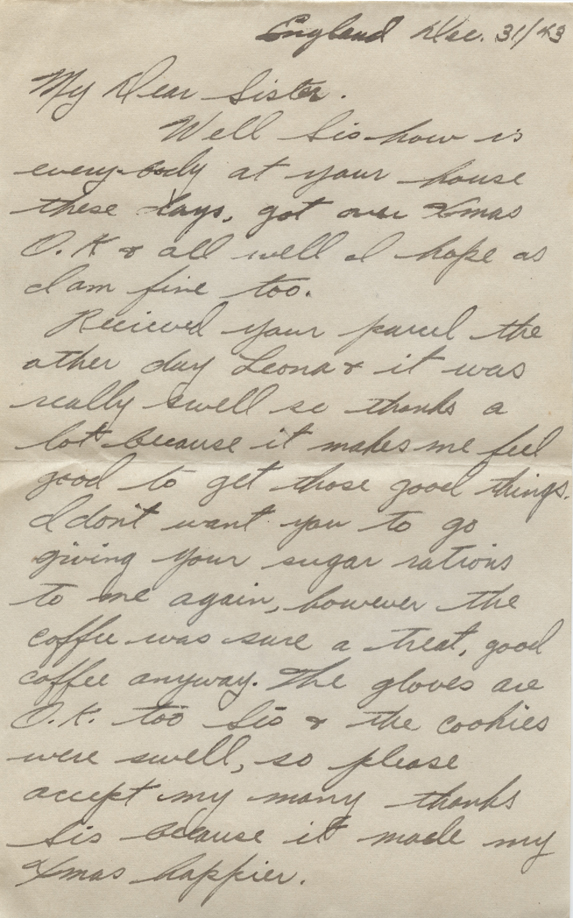 England Dec. 31/43
My Dear Sister.
Well Sis how is
every-body at your house
these days, got over Xmas
O.K & all well I hope as
I am fine too.
Recieved your parcel the
other day Leona & it was
really swell so thanks a
lot because it makes me feel
good to get those good things.
I don't want you to go
giving your sugar rations
to me again, however the
coffee was sure a treat, good
coffee anyway. The gloves are
O.K. too Sis & the cookies
were swell, so please
accept my many thanks
Sis because it made my
Xmas happier.